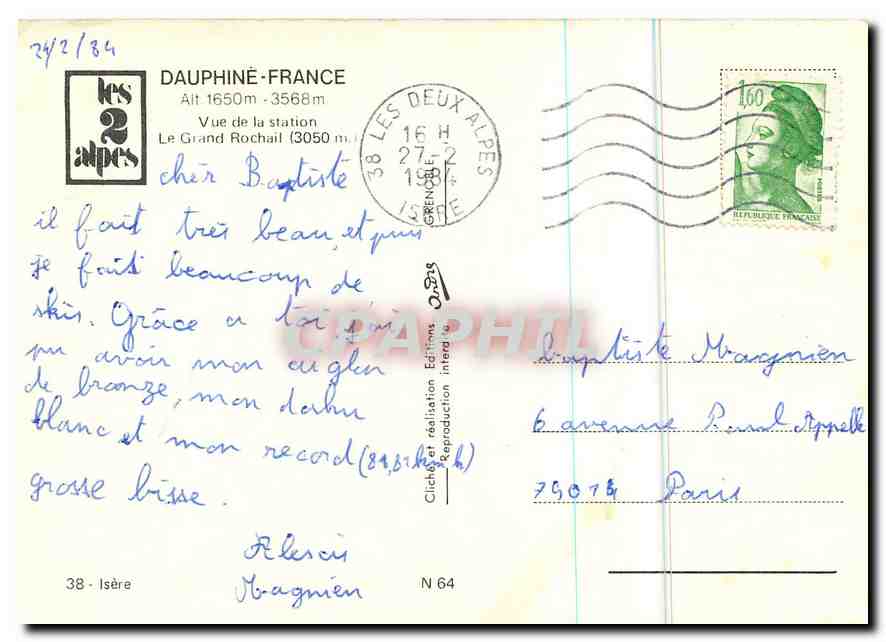 24/2/84
les
2
alpes
DAUPHINÉ-FRANCE
Alt 1650m - 3568m
Vue de la station
Le Grand Rochail (3050 m.)
cher Baptiste
il fait très beau, et puis
je fais beaucoup de
skis. Grâce a toi j'ai
pu avoir mon aiglon
de bronze, mon dahu
blanc et mon record (81,82 km h)
grosse bisse.
Alexis
Magnien
38 - Isère
N 64
Cliché et réalisation Editions André
Reproduction interdite
GRENOBLE
38 LES DEUX ALPES
16 H
27-2
1984
ISERE
1,60
REPUBLIQUE FRANÇAISE
CPAPHIL
baptiste Magnien
6 avenue Paul Appelle
75014 Paris